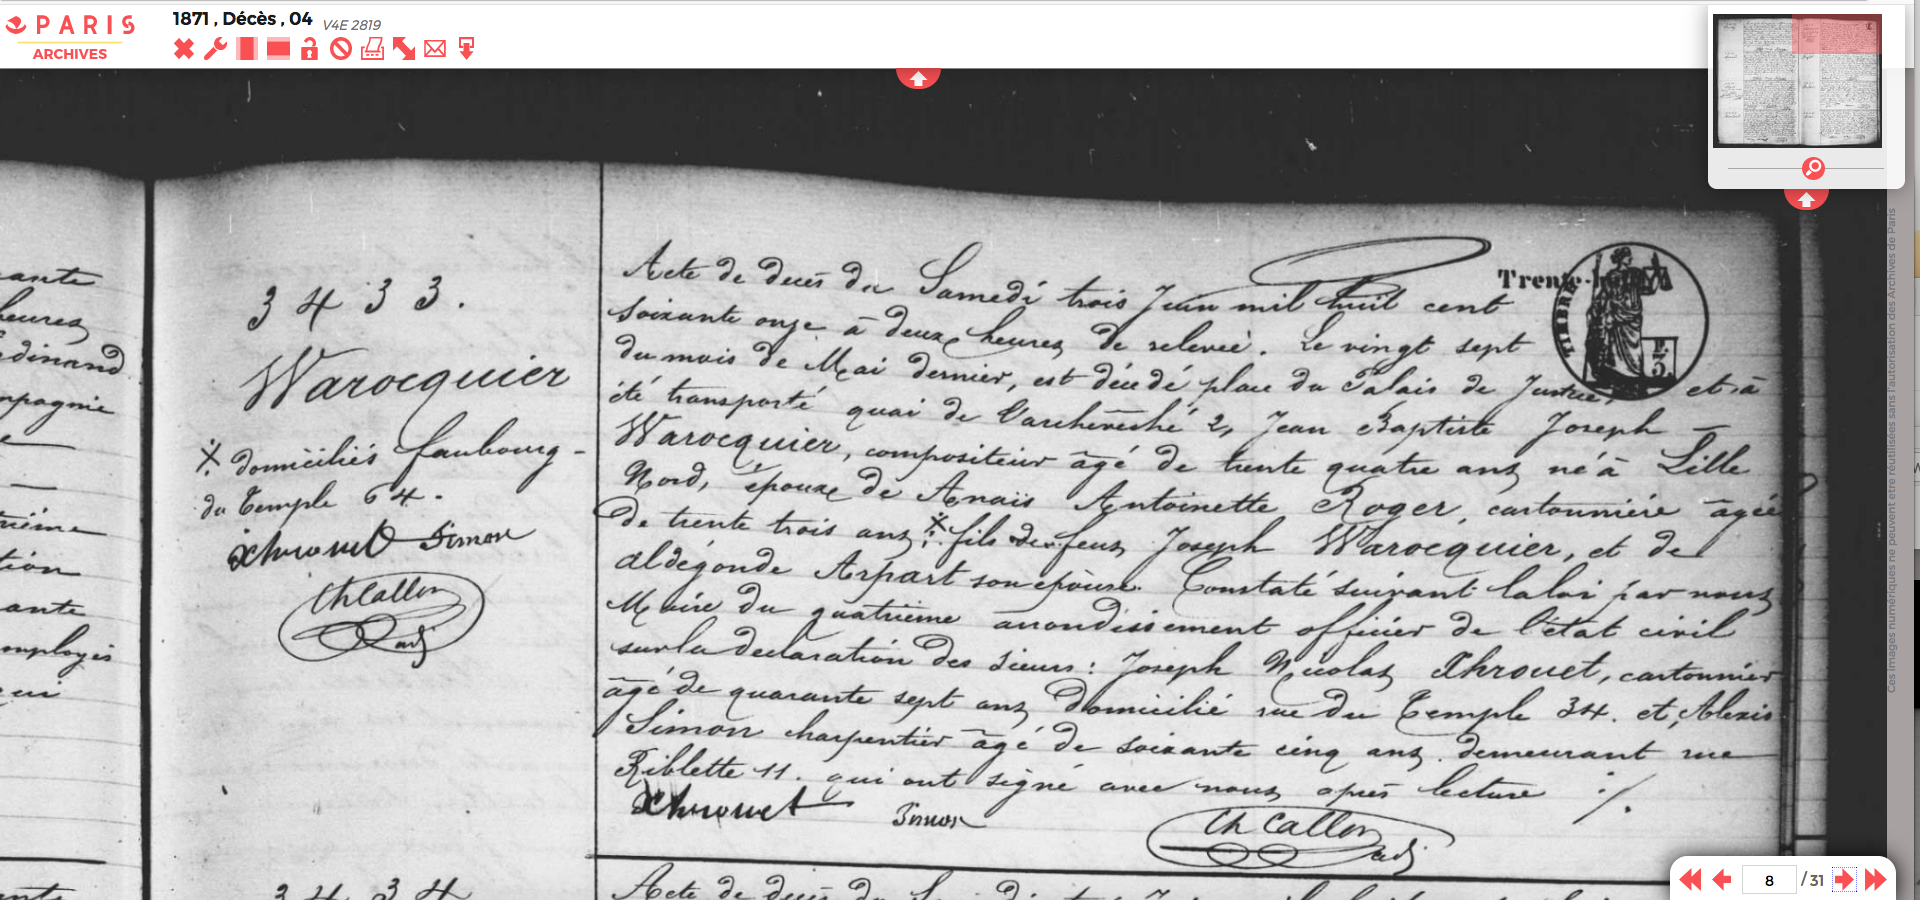 PARIS
ARCHIVES
1871 , Décès , 04 V4E 2819
ante
heures
dinand
mpagnie
e
rième
tion
ante
mployés
3433.
Warocquier
⁒ domiciliés faubourg -
du Temple 64.
Xhrouet Simon
Ch Callon
adj
Acte de décès du Samedi trois Juin mil huit cent
soixante onze à deux heures de relevée. Le vingt sept
du mois de Mai dernier, est décédé place du Palais de Justice, et à
été transporté quai de l'archevêché 2, Jean Baptiste Joseph -
Warocquier, compositeur âgé de trente quatre ans né à Lille
Nord, époux de Anaïs Antoinette Roger, cartonnière âgée
de trente trois ans, ⁒ fils de feus Joseph Warocquier, et de
aldégonde Arpart son épouse. Constaté suivant la loi par nous
Maire du quatrième arrondissement officier de l'état civil
sur la déclaration des sieurs : Joseph Nicolas Xhrouet, cartonnier
âgé de quarante sept ans domicilié rue du Temple 34. et, Alexis
Simon charpentier âgé de soixante cinq ans. demeurant rue
Riblette 11. qui ont signé avec nous après lecture ./.
Xhrouet Simon Ch Callon
adj
Trente-
TIMBRE
3434
Acte de décès du Samedi trois
Ces images numériques ne peuvent etre réutilisées sans l'autorisation des Archives de Paris
8 / 31